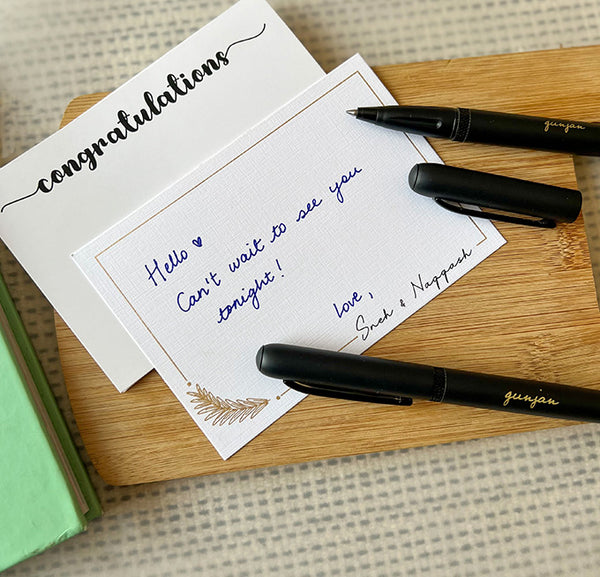 congratulations
Hello ♥
Can't wait to see you
tonight!
love,
Sneh & Naqqash
gunjan
gunjan